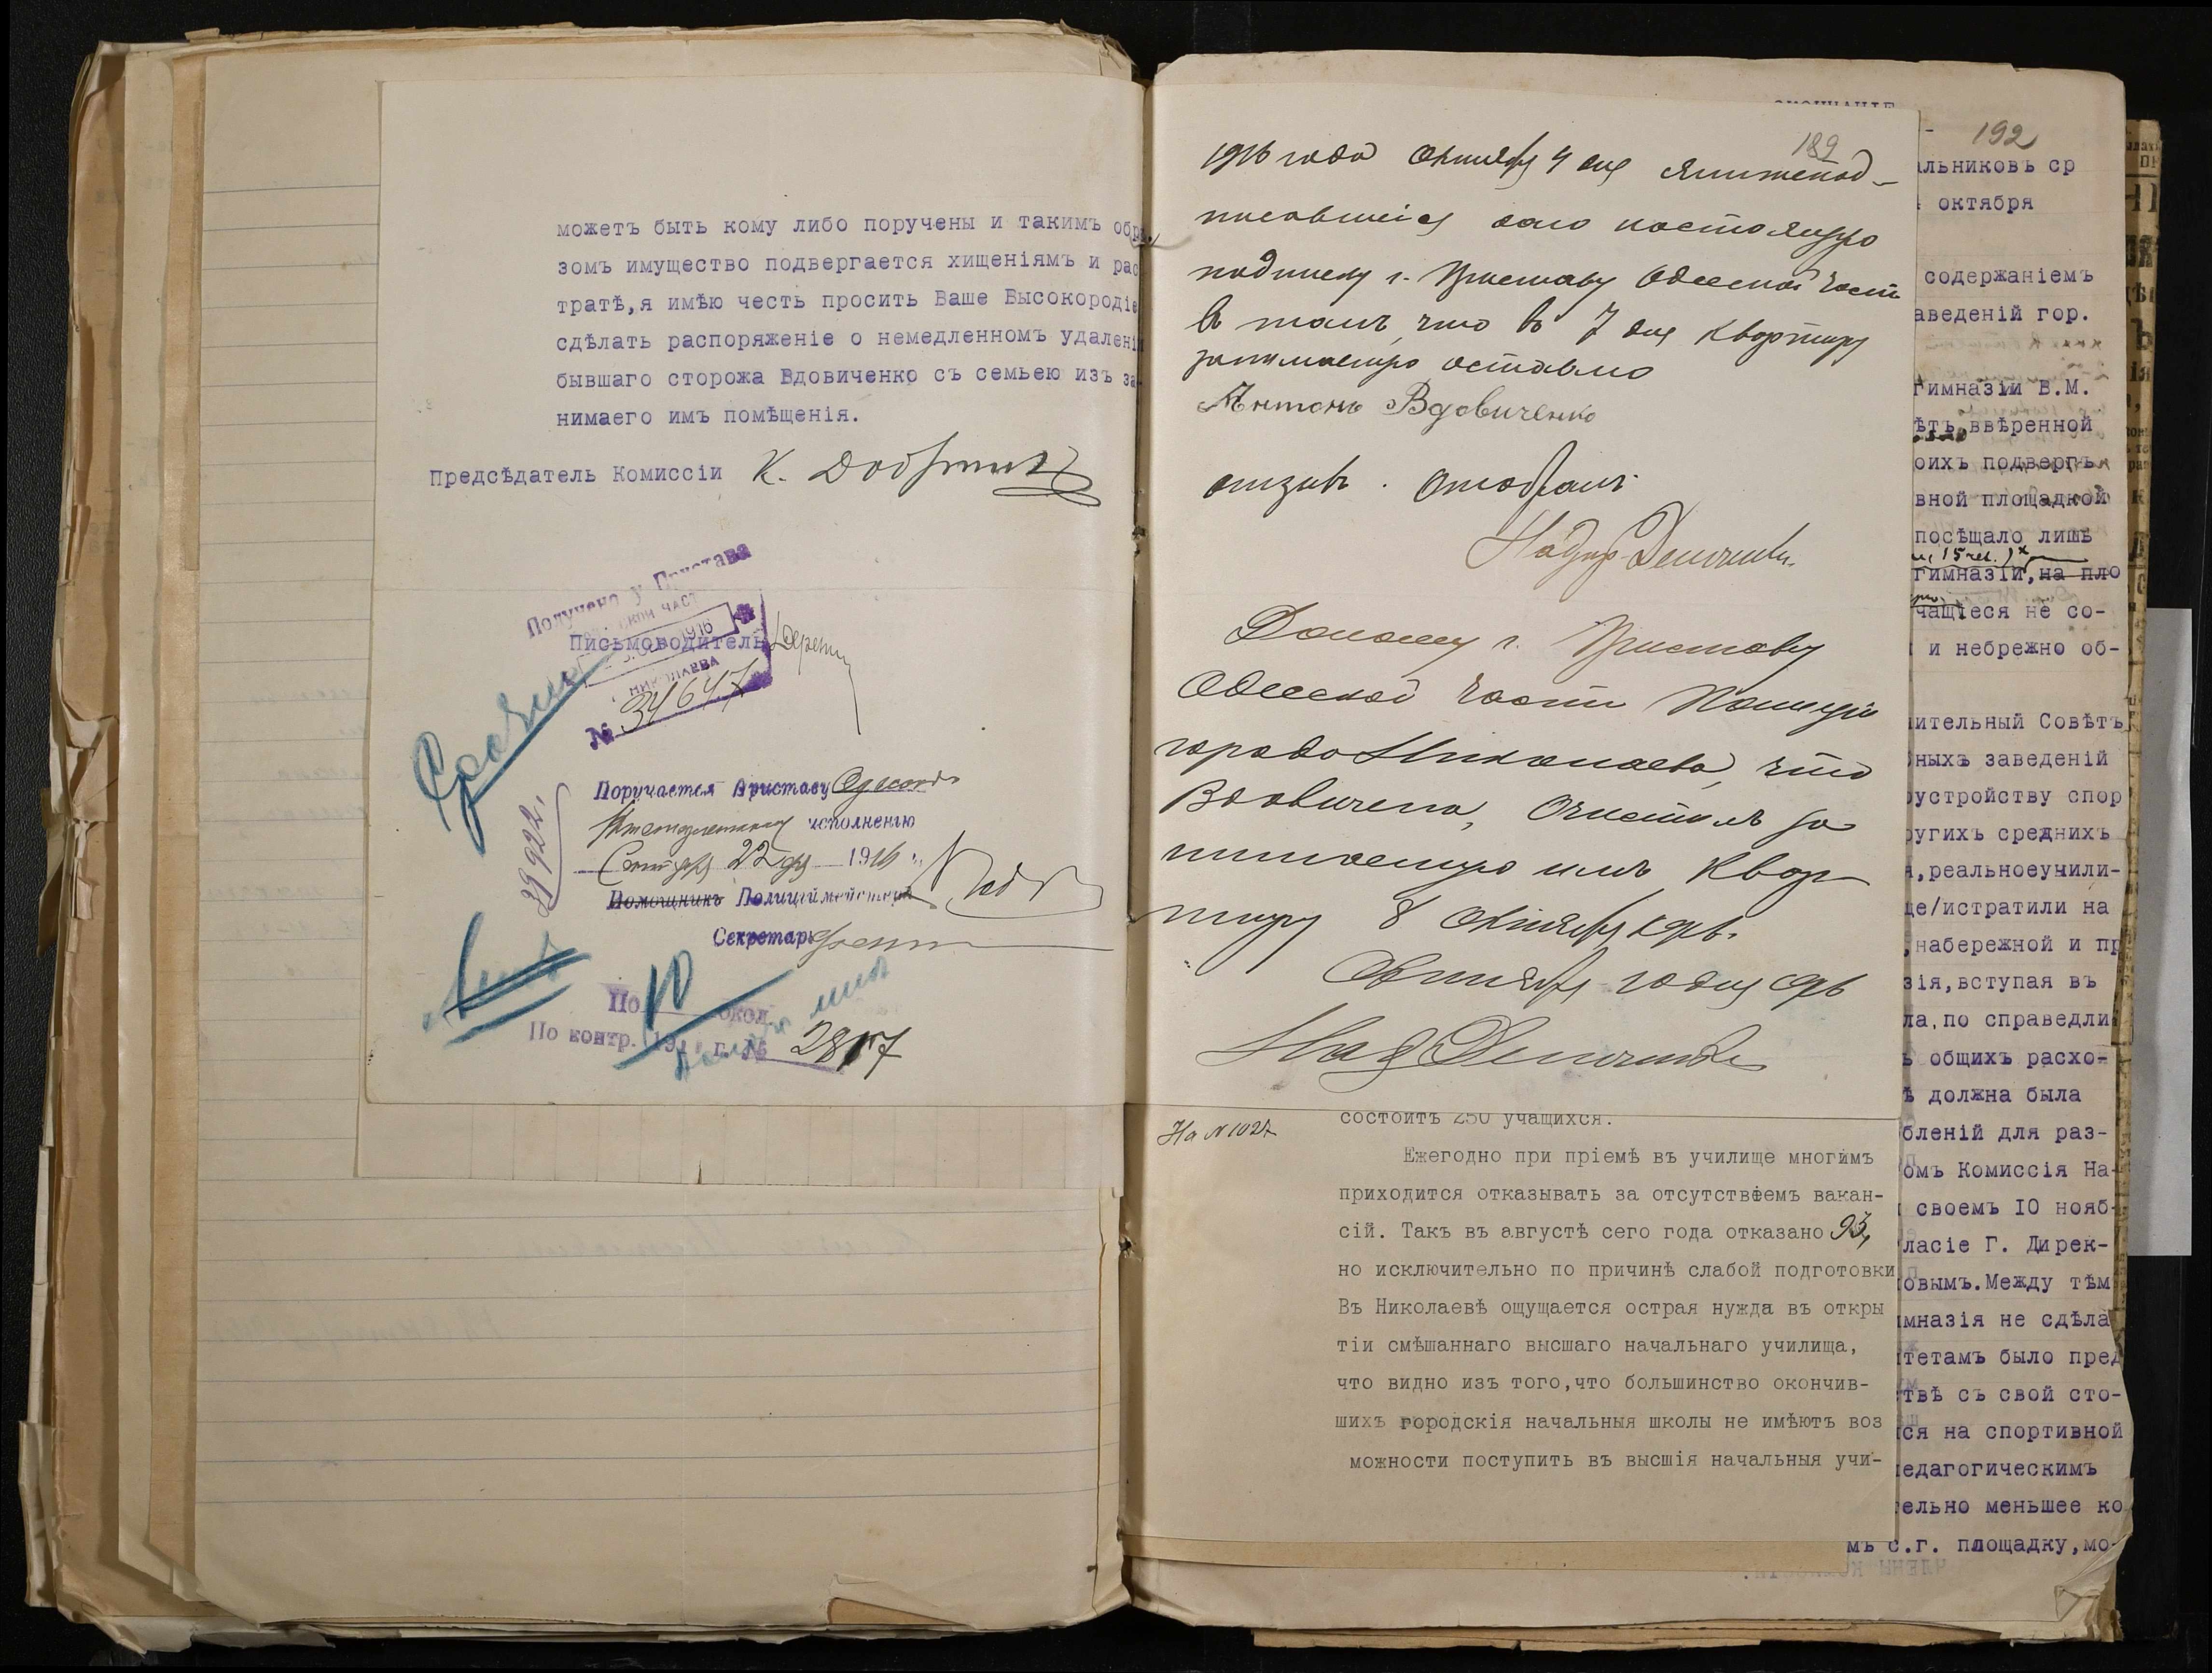 можетъ быть кому либо поручены и такимъ обра
зомъ имущество подвергается хищеніямъ и рас
тратѣ,я имѣю честь просить Ваше Высокородіе
сдѣлать распоряженіе о немедленномъ удаленіи
бывшаго сторожа Вдовиченко съ семьею изъ за-
нимаего имъ помѣщенія.
Предсѣдатель Комиссіи К.
Получено у Пристава
1916
Письмоводитель
НИКОЛАЕВА
№ 34647
Срочно
Поручается Приставу Одесской
исполненію
Сентября 22 дня 1916
Помощникъ Полиціймейстера
Секретарь
39922.
По 10 окол.
По контр. 191 г. № 2817
189
1916 года Октября 4 дня Я нижепод-
писавшійся даю настоящую
подписку г. Приставу Одесской части
въ томъ, что въ 7 дня квартиру
занимаемую оставлю
Антонъ Вдовиченко
отзывъ. Отобралъ
Надзир.
Доношу г. Приставу
Одесской части Полиціи
города Николаева, что
Вдовиченко, Очистилъ за
нимаемую имъ Квар
тиру 8 Октября 1916.
Октября 10 дня 1916
Над
На № 1027
состоитъ 250 учащихся.
Ежегодно при пріемѣ въ училище многимъ
приходится отказывать за отсутствіемъ вакан-
сій. Такъ въ августѣ сего года отказано 93,
но исключительно по причинѣ слабой подготовки
Въ Николаевѣ ощущается острая нужда въ откры
тіи смѣшаннаго высшаго начальнаго училища,
что видно изъ того,что большинство окончив-
шихъ городскія начальныя школы не имѣютъ воз
можности поступить въ высшія начальныя учи-
192
альниковъ ср
октября
содержаніемъ
аведеній гор.
гимназіи В.М.
ѣтъ ввѣренной
оихъ подвергъ
вной площадкой
посѣщало лишь
гимназіи, на пло
чащіеся не со-
и небрежно об-
ительный Совѣтъ
ныхъ заведеній
устройству спор
ругихъ среднихъ
,реальноеучили-
ще/истратили на
,набережной и пр
зія,вступая въ
ла,по справедли
ъ общихъ расхо-
ѣ должна была
бленій для раз-
омъ Комиссія На-
своемъ 10 нояб-
ласіе Г. Дирек-
овымъ.Между тѣм
мназія не сдѣла
тетамъ было пред
твѣ съ свой сто-
ся на спортивной
едагогическимъ
тельно меньшее ко
мъ с.г. площадку,мо-